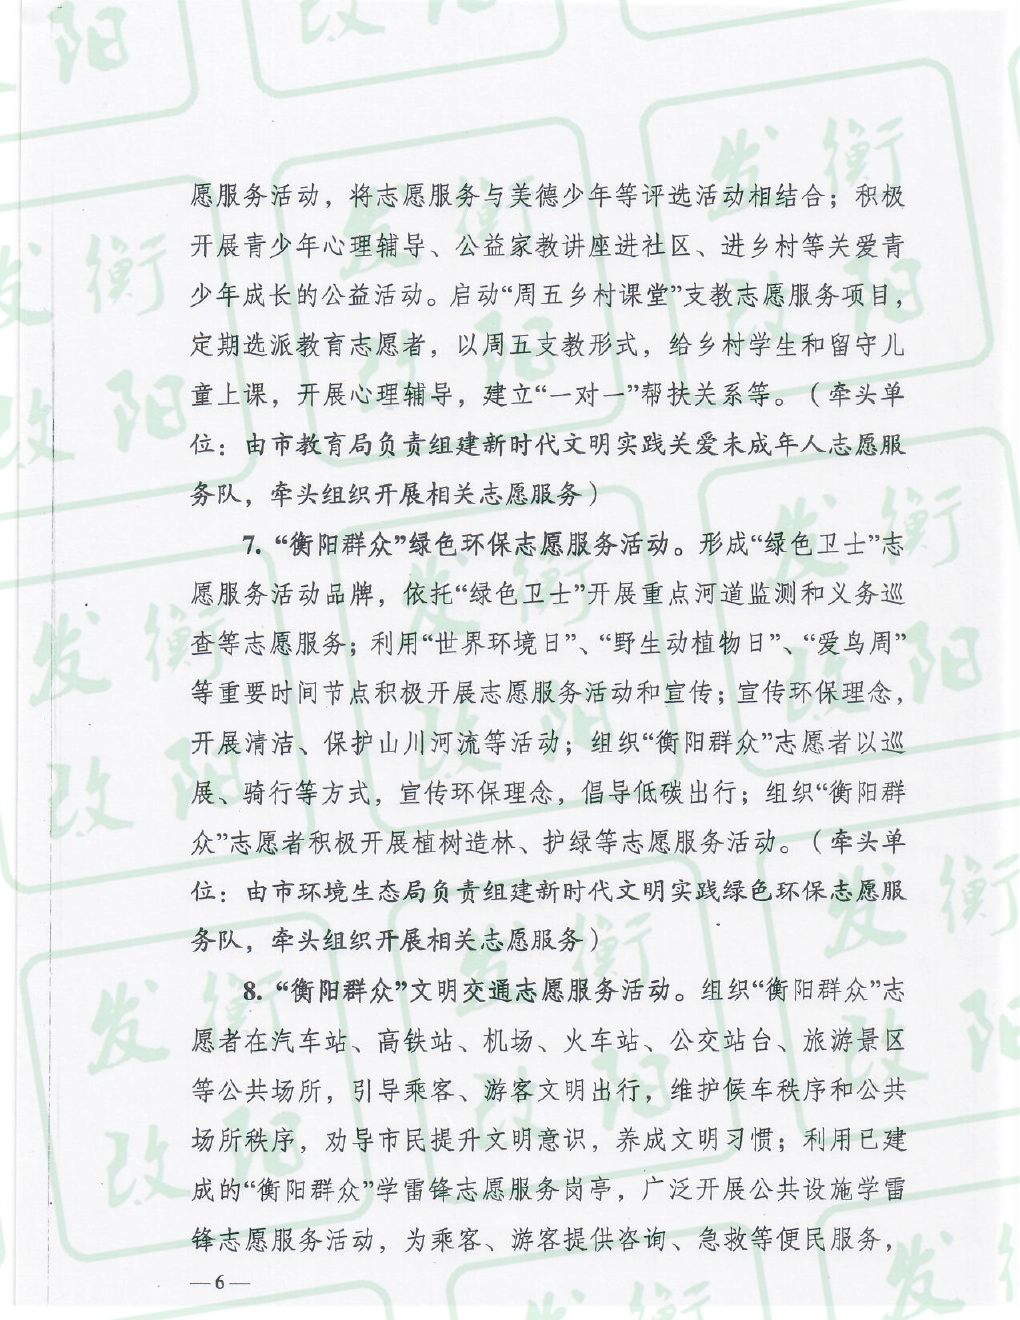 愿服务活动，将志愿服务与美德少年等评选活动相结合；积极
开展青少年心理辅导、公益家教讲座进社区、进乡村等关爱青
少年成长的公益活动。启动“周五乡村课堂”支教志愿服务项目，
定期选派教育志愿者，以周五支教形式，给乡村学生和留守儿
童上课，开展心理辅导，建立“一对一”帮扶关系等。（牵头单
位：由市教育局负责组建新时代文明实践关爱未成年人志愿服
务队，牵头组织开展相关志愿服务）
7.“衡阳群众”绿色环保志愿服务活动。形成“绿色卫士”志
愿服务活动品牌，依托“绿色卫士”开展重点河道监测和义务巡
查等志愿服务；利用“世界环境日”、“野生动植物日”、“爱鸟周”
等重要时间节点积极开展志愿服务活动和宣传；宣传环保理念，
开展清洁、保护山川河流等活动；组织“衡阳群众”志愿者以巡
展、骑行等方式，宣传环保理念，倡导低碳出行；组织“衡阳群
众”志愿者积极开展植树造林、护绿等志愿服务活动。（牵头单
位：由市环境生态局负责组建新时代文明实践绿色环保志愿服
务队，牵头组织开展相关志愿服务）
8.“衡阳群众”文明交通志愿服务活动。组织“衡阳群众”志
愿者在汽车站、高铁站、机场、火车站、公交站台、旅游景区
等公共场所，引导乘客、游客文明出行，维护候车秩序和公共
场所秩序，劝导市民提升文明意识，养成文明习惯；利用已建
成的“衡阳群众”学雷锋志愿服务岗亭，广泛开展公共设施学雷
锋志愿服务活动，为乘客、游客提供咨询、急救等便民服务，
—6—
衡阳发改